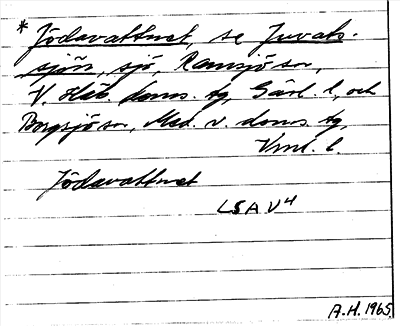 * Jödavattnet, se Juvats-
sjön, sjö, Ramsjö sn,
V. Häls. doms. tg, Gävl. l., och
Borgsjö sn, Med. v. doms. tg,
Vnl. l.
Jödavattnet
LSA V4
A.H. 1965